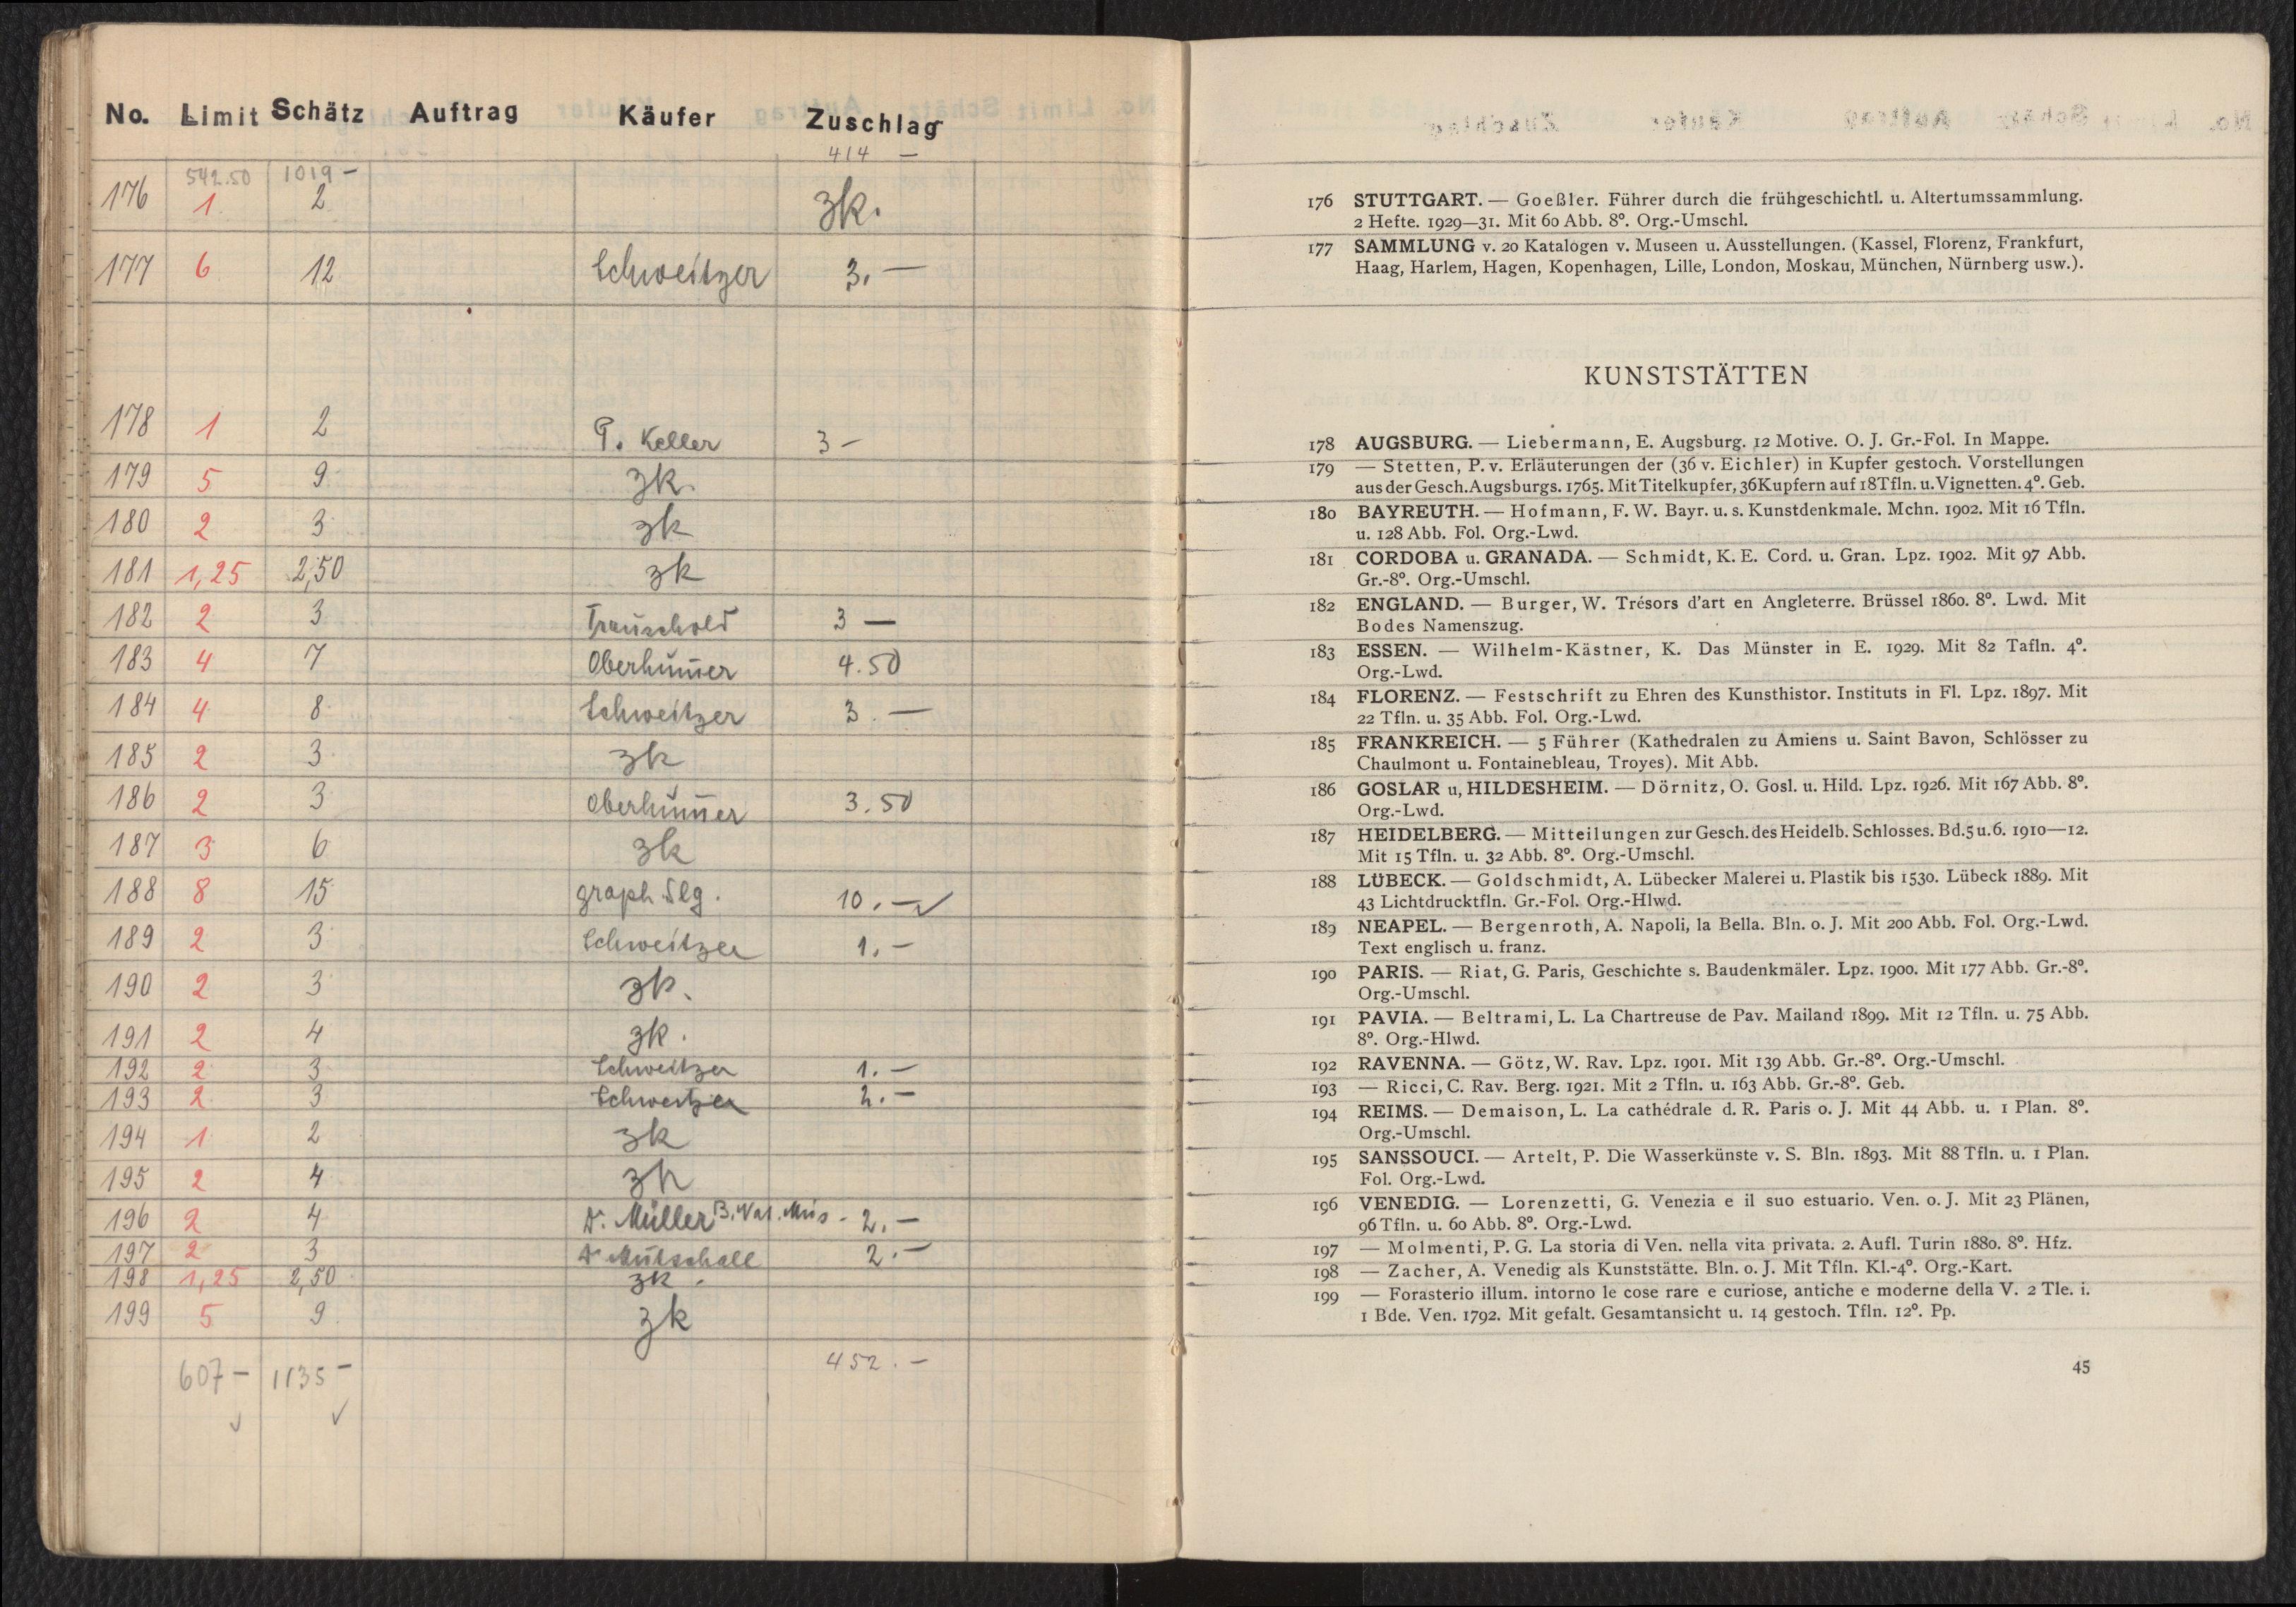 No. Limit Schätz Auftrag Käufer Zuschlag
542.50 1019 – 414 –
176 1 2 zk.
177 6 12 Schweitzer 3. –
178 1 2 P. Keller 3 –
179 5 9 zk.
180 2 3 zk
181 1,25 2,50 zk
182 2 3 3 –
183 4 7 Oberhum̄er 4.50
184 4 8 Schweitzer 3. –
185 2 3 zk
186 2 3 Oberhum̄er 3.50
187 3 6 zk
188 8 15 graph. Slg. 10. – ✓
189 2 3 Schweitzer 1. –
190 2 3 zk.
191 2 4 zk.
192 2 3 Schweitzer 1. –
193 2 3 Schweitzer 2. –
194 1 2 zk
195 2 4 zk
196 2 4 Dr. Müller B. Nat. Mus. 2. –
197 2 3 2. –
198 1,25 2,50 zk.
199 5 9 zk
607 – 1135 – 452. –
✓ ✓
176 STUTTGART. — Goeßler. Führer durch die frühgeschichtl. u. Altertumssammlung.
2 Hefte. 1929—31. Mit 60 Abb. 8°. Org.-Umschl.
177 SAMMLUNG v. 20 Katalogen v. Museen u. Ausstellungen. (Kassel, Florenz, Frankfurt,
Haag, Harlem, Hagen, Kopenhagen, Lille, London, Moskau, München, Nürnberg usw.).
KUNSTSTÄTTEN
178 AUGSBURG. — Liebermann, E. Augsburg. 12 Motive. O. J. Gr.-Fol. In Mappe.
179 — Stetten, P. v. Erläuterungen der (36 v. Eichler) in Kupfer gestoch. Vorstellungen
aus der Gesch. Augsburgs. 1765. Mit Titelkupfer, 36 Kupfern auf 18 Tfln. u. Vignetten. 4°. Geb.
180 BAYREUTH. — Hofmann, F. W. Bayr. u. s. Kunstdenkmale. Mchn. 1902. Mit 16 Tfln.
u. 128 Abb. Fol. Org.-Lwd.
181 CORDOBA u. GRANADA. — Schmidt, K. E. Cord. u. Gran. Lpz. 1902. Mit 97 Abb.
Gr.-8°. Org.-Umschl.
182 ENGLAND. — Burger, W. Trésors d'art en Angleterre. Brüssel 1860. 8°. Lwd. Mit
Bodes Namenszug.
183 ESSEN. — Wilhelm-Kästner, K. Das Münster in E. 1929. Mit 82 Tafln. 4°.
Org.-Lwd.
184 FLORENZ. — Festschrift zu Ehren des Kunsthistor. Instituts in Fl. Lpz. 1897. Mit
22 Tfln. u. 35 Abb. Fol. Org.-Lwd.
185 FRANKREICH. — 5 Führer (Kathedralen zu Amiens u. Saint Bavon, Schlösser zu
Chaulmont u. Fontainebleau, Troyes). Mit Abb.
186 GOSLAR u, HILDESHEIM. — Dörnitz, O. Gosl. u. Hild. Lpz. 1926. Mit 167 Abb. 8°.
Org.-Lwd.
187 HEIDELBERG. — Mitteilungen zur Gesch. des Heidelb. Schlosses. Bd. 5 u. 6. 1910—12.
Mit 15 Tfln. u. 32 Abb. 8°. Org.-Umschl.
188 LÜBECK. — Goldschmidt, A. Lübecker Malerei u. Plastik bis 1530. Lübeck 1889. Mit
43 Lichtdrucktfln. Gr.-Fol. Org.-Hlwd.
189 NEAPEL. — Bergenroth, A. Napoli, la Bella. Bln. o. J. Mit 200 Abb. Fol. Org.-Lwd.
Text englisch u. franz.
190 PARIS. — Riat, G. Paris, Geschichte s. Baudenkmäler. Lpz. 1900. Mit 177 Abb. Gr.-8°.
Org.-Umschl.
191 PAVIA. — Beltrami, L. La Chartreuse de Pav. Mailand 1899. Mit 12 Tfln. u. 75 Abb.
8°. Org.-Hlwd.
192 RAVENNA. — Götz, W. Rav. Lpz. 1901. Mit 139 Abb. Gr.-8°. Org.-Umschl.
193 — Ricci, C. Rav. Berg. 1921. Mit 2 Tfln. u. 163 Abb. Gr.-8°. Geb.
194 REIMS. — Demaison, L. La cathédrale d. R. Paris o. J. Mit 44 Abb. u. 1 Plan. 8°.
Org.-Umschl.
195 SANSSOUCI. — Artelt, P. Die Wasserkünste v. S. Bln. 1893. Mit 88 Tfln. u. 1 Plan.
Fol. Org.-Lwd.
196 VENEDIG. — Lorenzetti, G. Venezia e il suo estuario. Ven. o. J. Mit 23 Plänen,
96 Tfln. u. 60 Abb. 8°. Org.-Lwd.
197 — Molmenti, P. G. La storia di Ven. nella vita privata. 2. Aufl. Turin 1880. 8°. Hfz.
198 — Zacher, A. Venedig als Kunststätte. Bln. o. J. Mit Tfln. Kl.-4°. Org.-Kart.
199 — Forasterio illum. intorno le cose rare e curiose, antiche e moderne della V. 2 Tle. i.
1 Bde. Ven. 1792. Mit gefalt. Gesamtansicht u. 14 gestoch. Tfln. 12°. Pp.
45